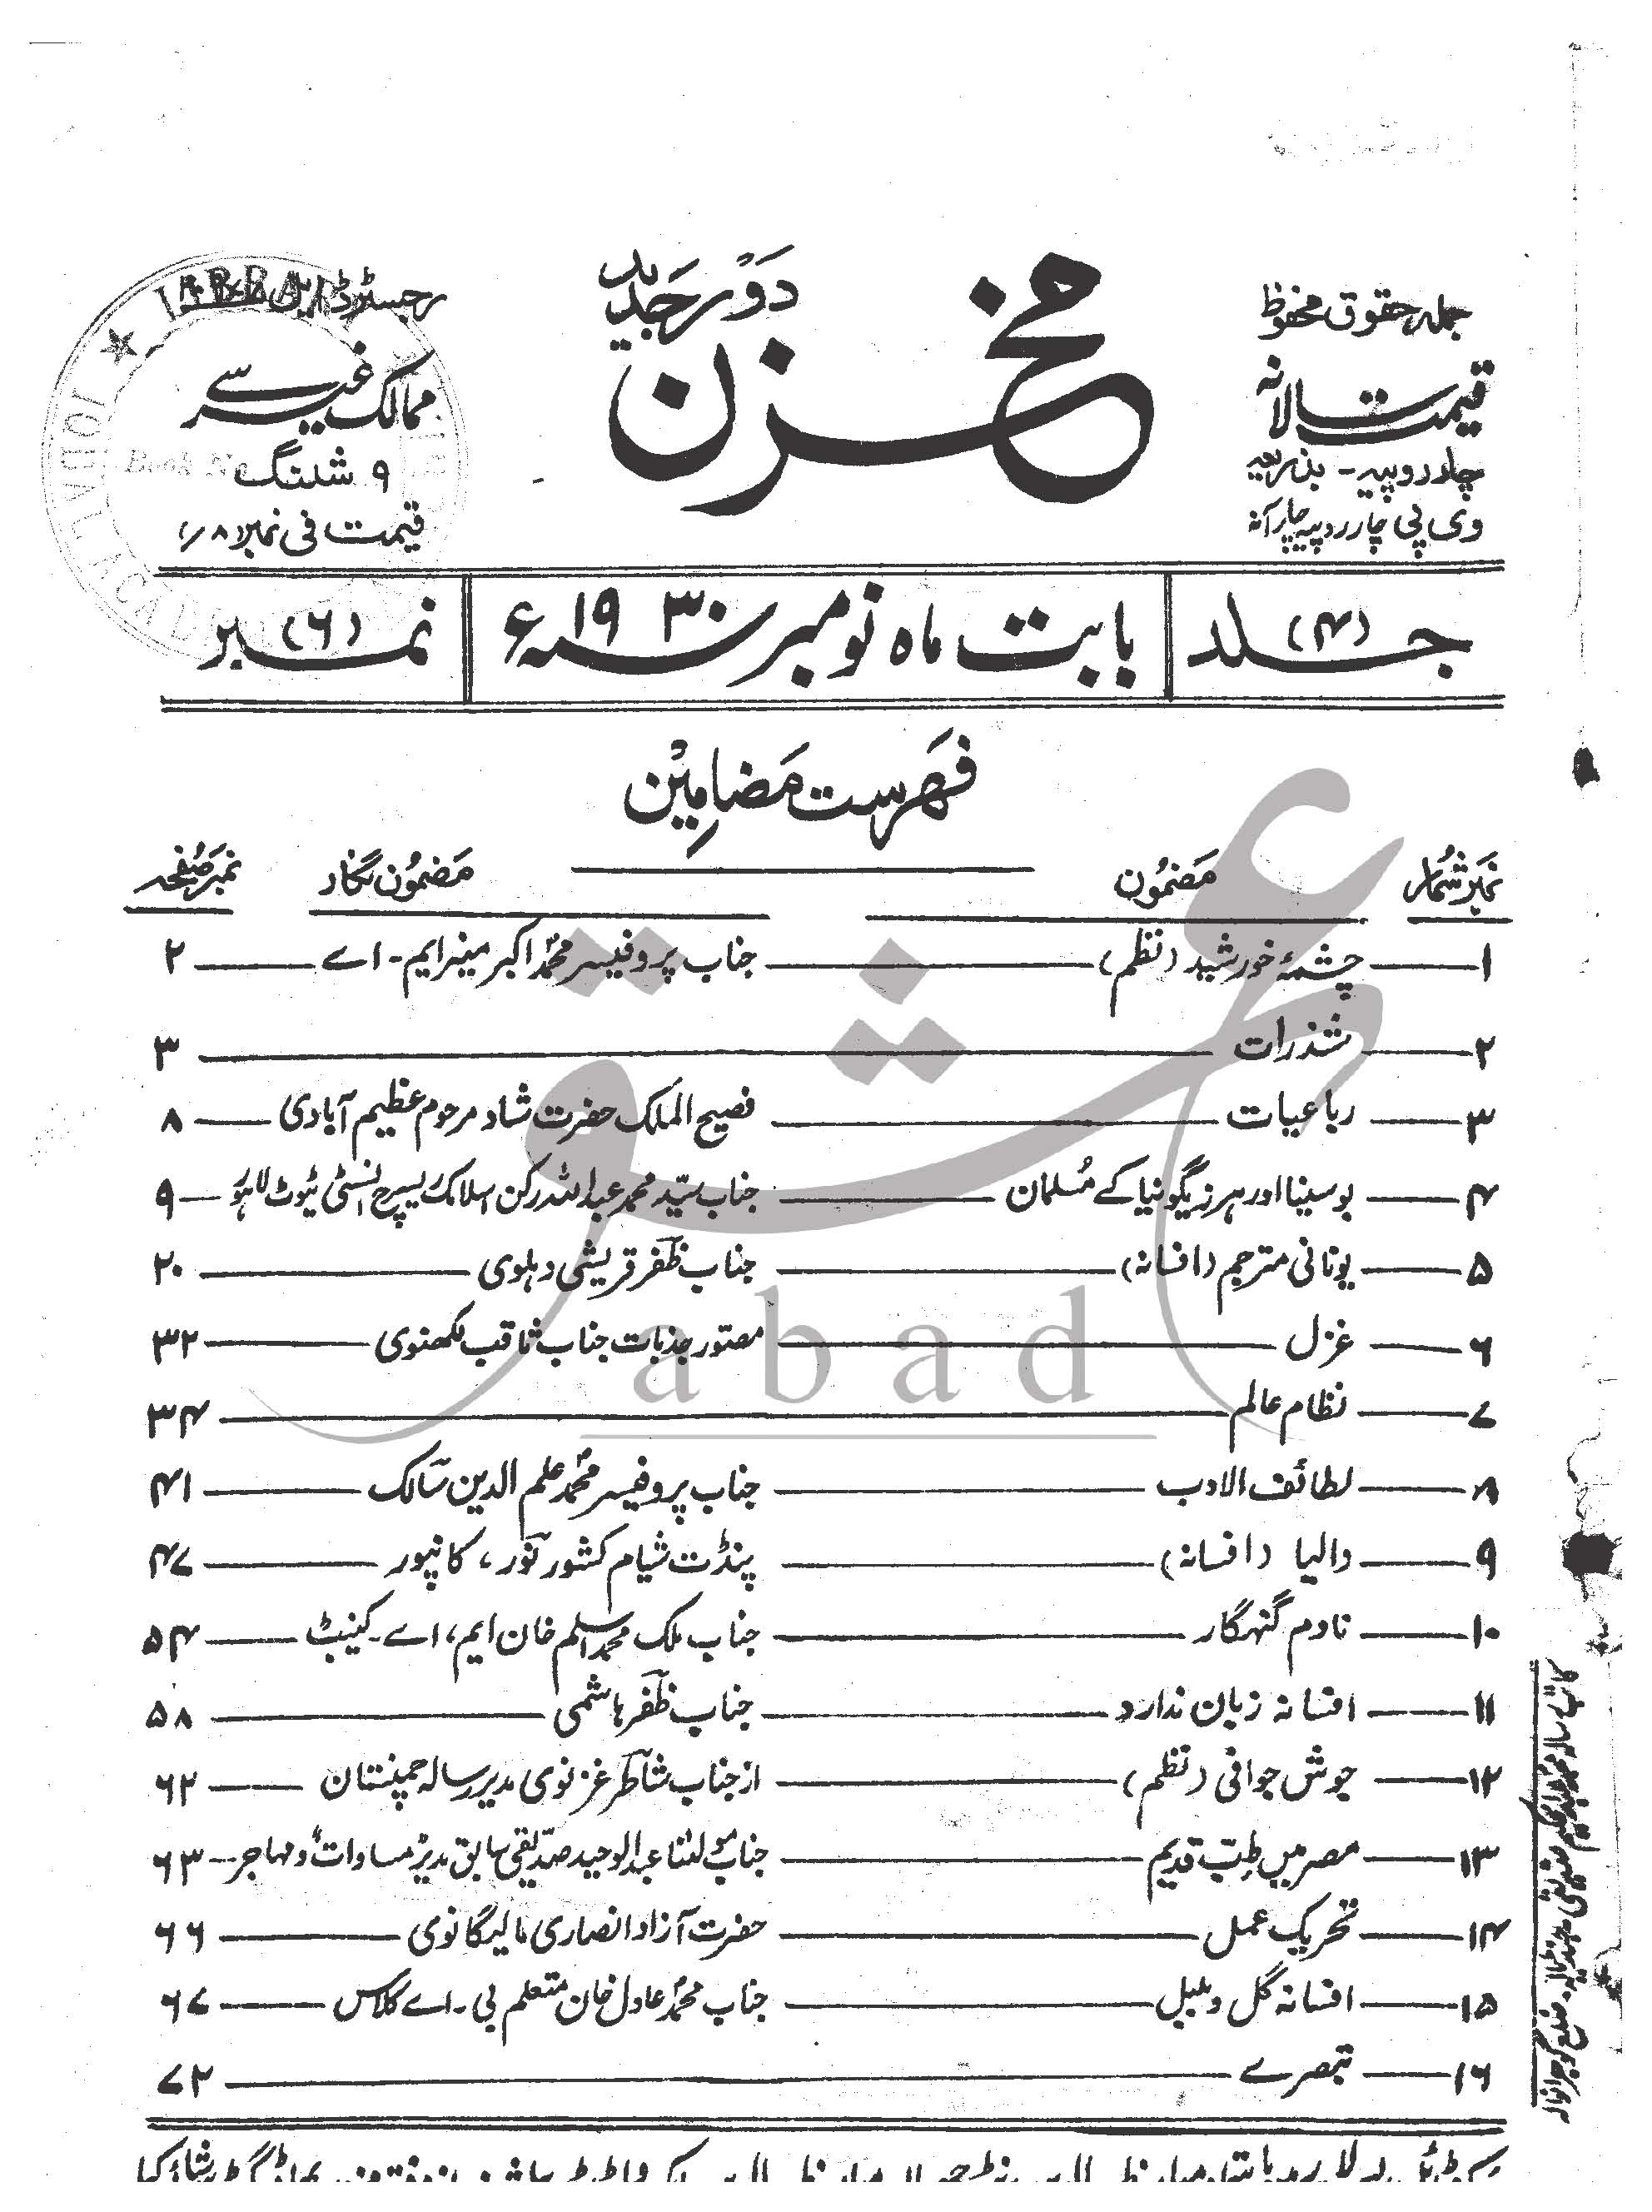 مخزن
دور جدید
جملہ حقوق محفوظ
قیمت سالانہ
چار روپیہ - بذریعہ
وی پی چار روپیہ چار آنہ
رجسٹرڈ ایل
ممالک غیر سے
۹ شلنگ
قیمت فی نمبر (۸ر)
جلد (۴) بابت ماہ نومبر سنہ ۱۹۳۰ء نمبر (۶)
فہرست مضامین
نمبر شمار مضمون مضمون نگار نمبر صفحہ
۱ چشمۂ خورشید (نظم) جناب پروفیسر محمد اکبر منیر ایم - اے ۲
۲ شذرات ۳
۳ رباعیات فصیح الملک حضرت شاد مرحوم عظیم آبادی ۸
۴ بوسینا اور ہرزیگونیا کے مسلمان جناب سید محمد عبداللہ رکن اسلامک ریسرچ انسٹی ٹیوٹ لاہور ۹
۵ یونانی مترجم (افسانہ) جناب ظفر قریشی دہلوی ۲۰
۶ غزل مصور جذبات جناب ثاقب لکھنوی ۳۲
۷ نظام عالم ۳۴
۸ لطائف الادب جناب پروفیسر محمد علم الدین سالک ۴۱
۹ دالیا (افسانہ) پنڈت شیام کشور نور، کانپور ۴۷
۱۰ نادم گنہگار جناب ملک محمد اسلم خان ایم، اے - کینٹب ۵۴
۱۱ افسانہ زبان ندارد جناب ظفر ہاشمی ۵۸
۱۲ جوش جوانی (نظم) از جناب شاطر غزنوی مدیر رسالہ چمنستان ۶۲
۱۳ مصر میں طب قدیم جناب مولٰنا عبدالوحید صدیقی سابق مدیر مساوات و مہاجر ۶۳
۱۴ تحریک عمل حضرت آزاد انصاری مالیگانوی ۶۶
۱۵ افسانہ گل و بلبل جناب محمد عادل خان متعلم بی - اے کلاس ۶۷
۱۶ تبصرے ۷۲
کاتب رسالہ محمد عبدالحکیم ضلع گوجرانوالہ
IQBAL ACAD
Book No
abad